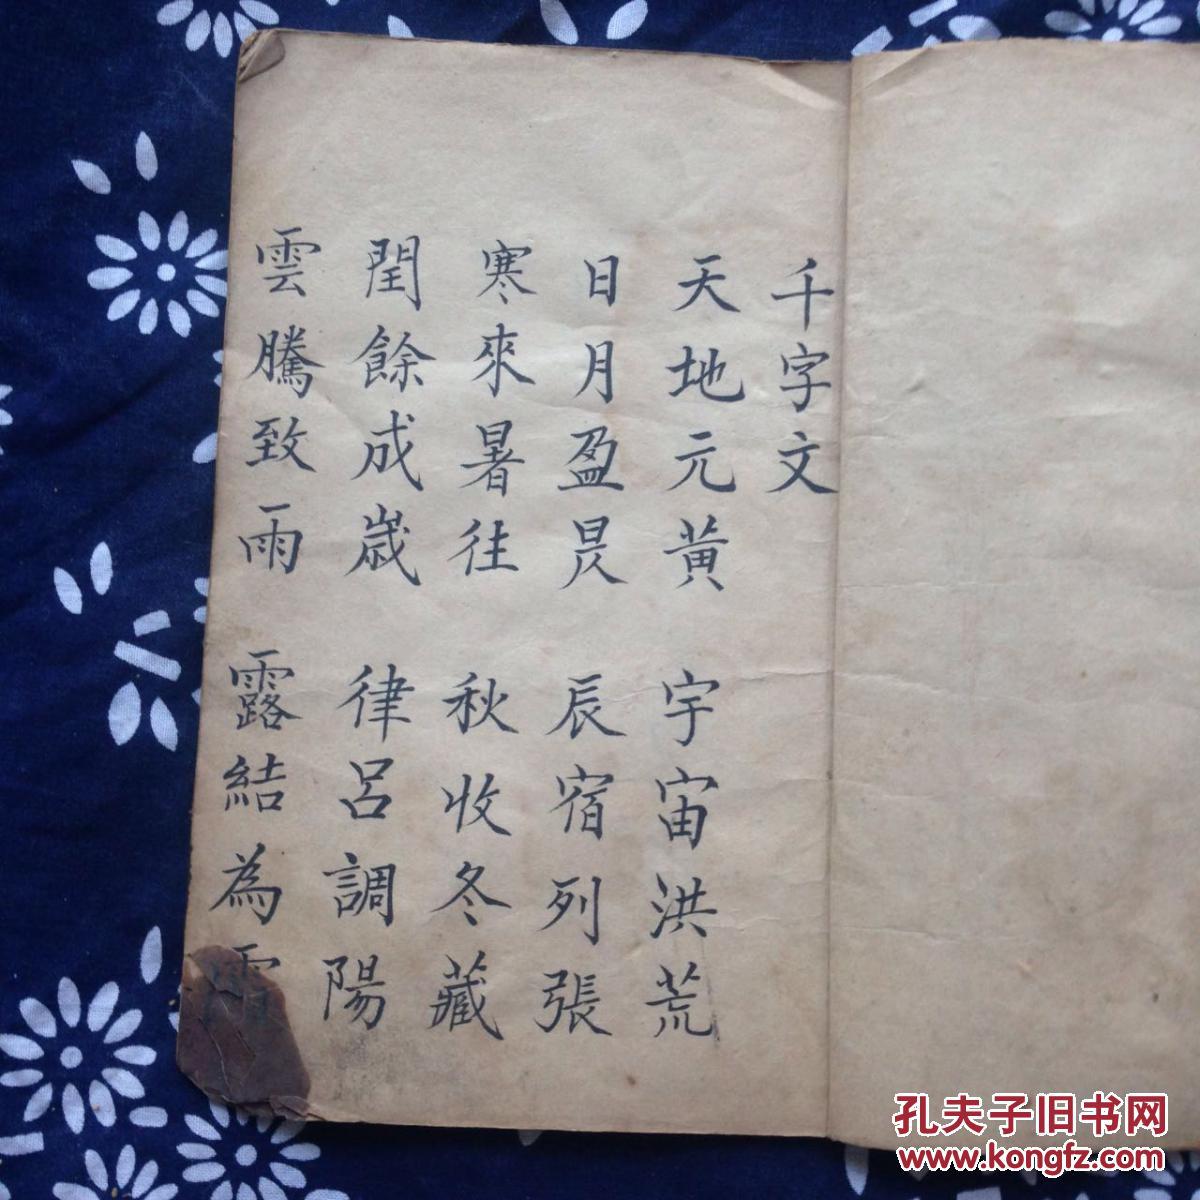 千字文
天地元黃 宇宙洪荒
日月盈昃 辰宿列張
寒來暑往 秋收冬藏
閏餘成歲 律呂調陽
雲騰致雨 露結為霜
孔夫子旧书网
www.kongfz.com